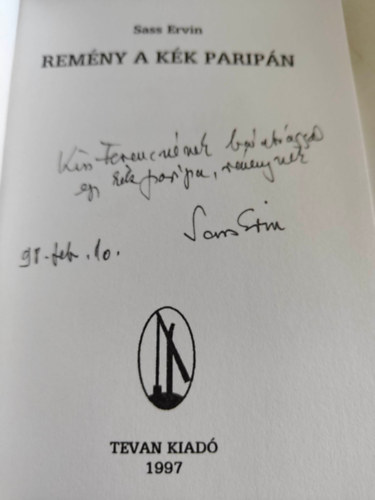 Sass Ervin
REMÉNY A KÉK PARIPÁN
Kiss Ferencnének barátsággal
egy kék paripa, reménynek
Sass Ervin
98. feb. 10.
TEVAN KIADÓ
1997